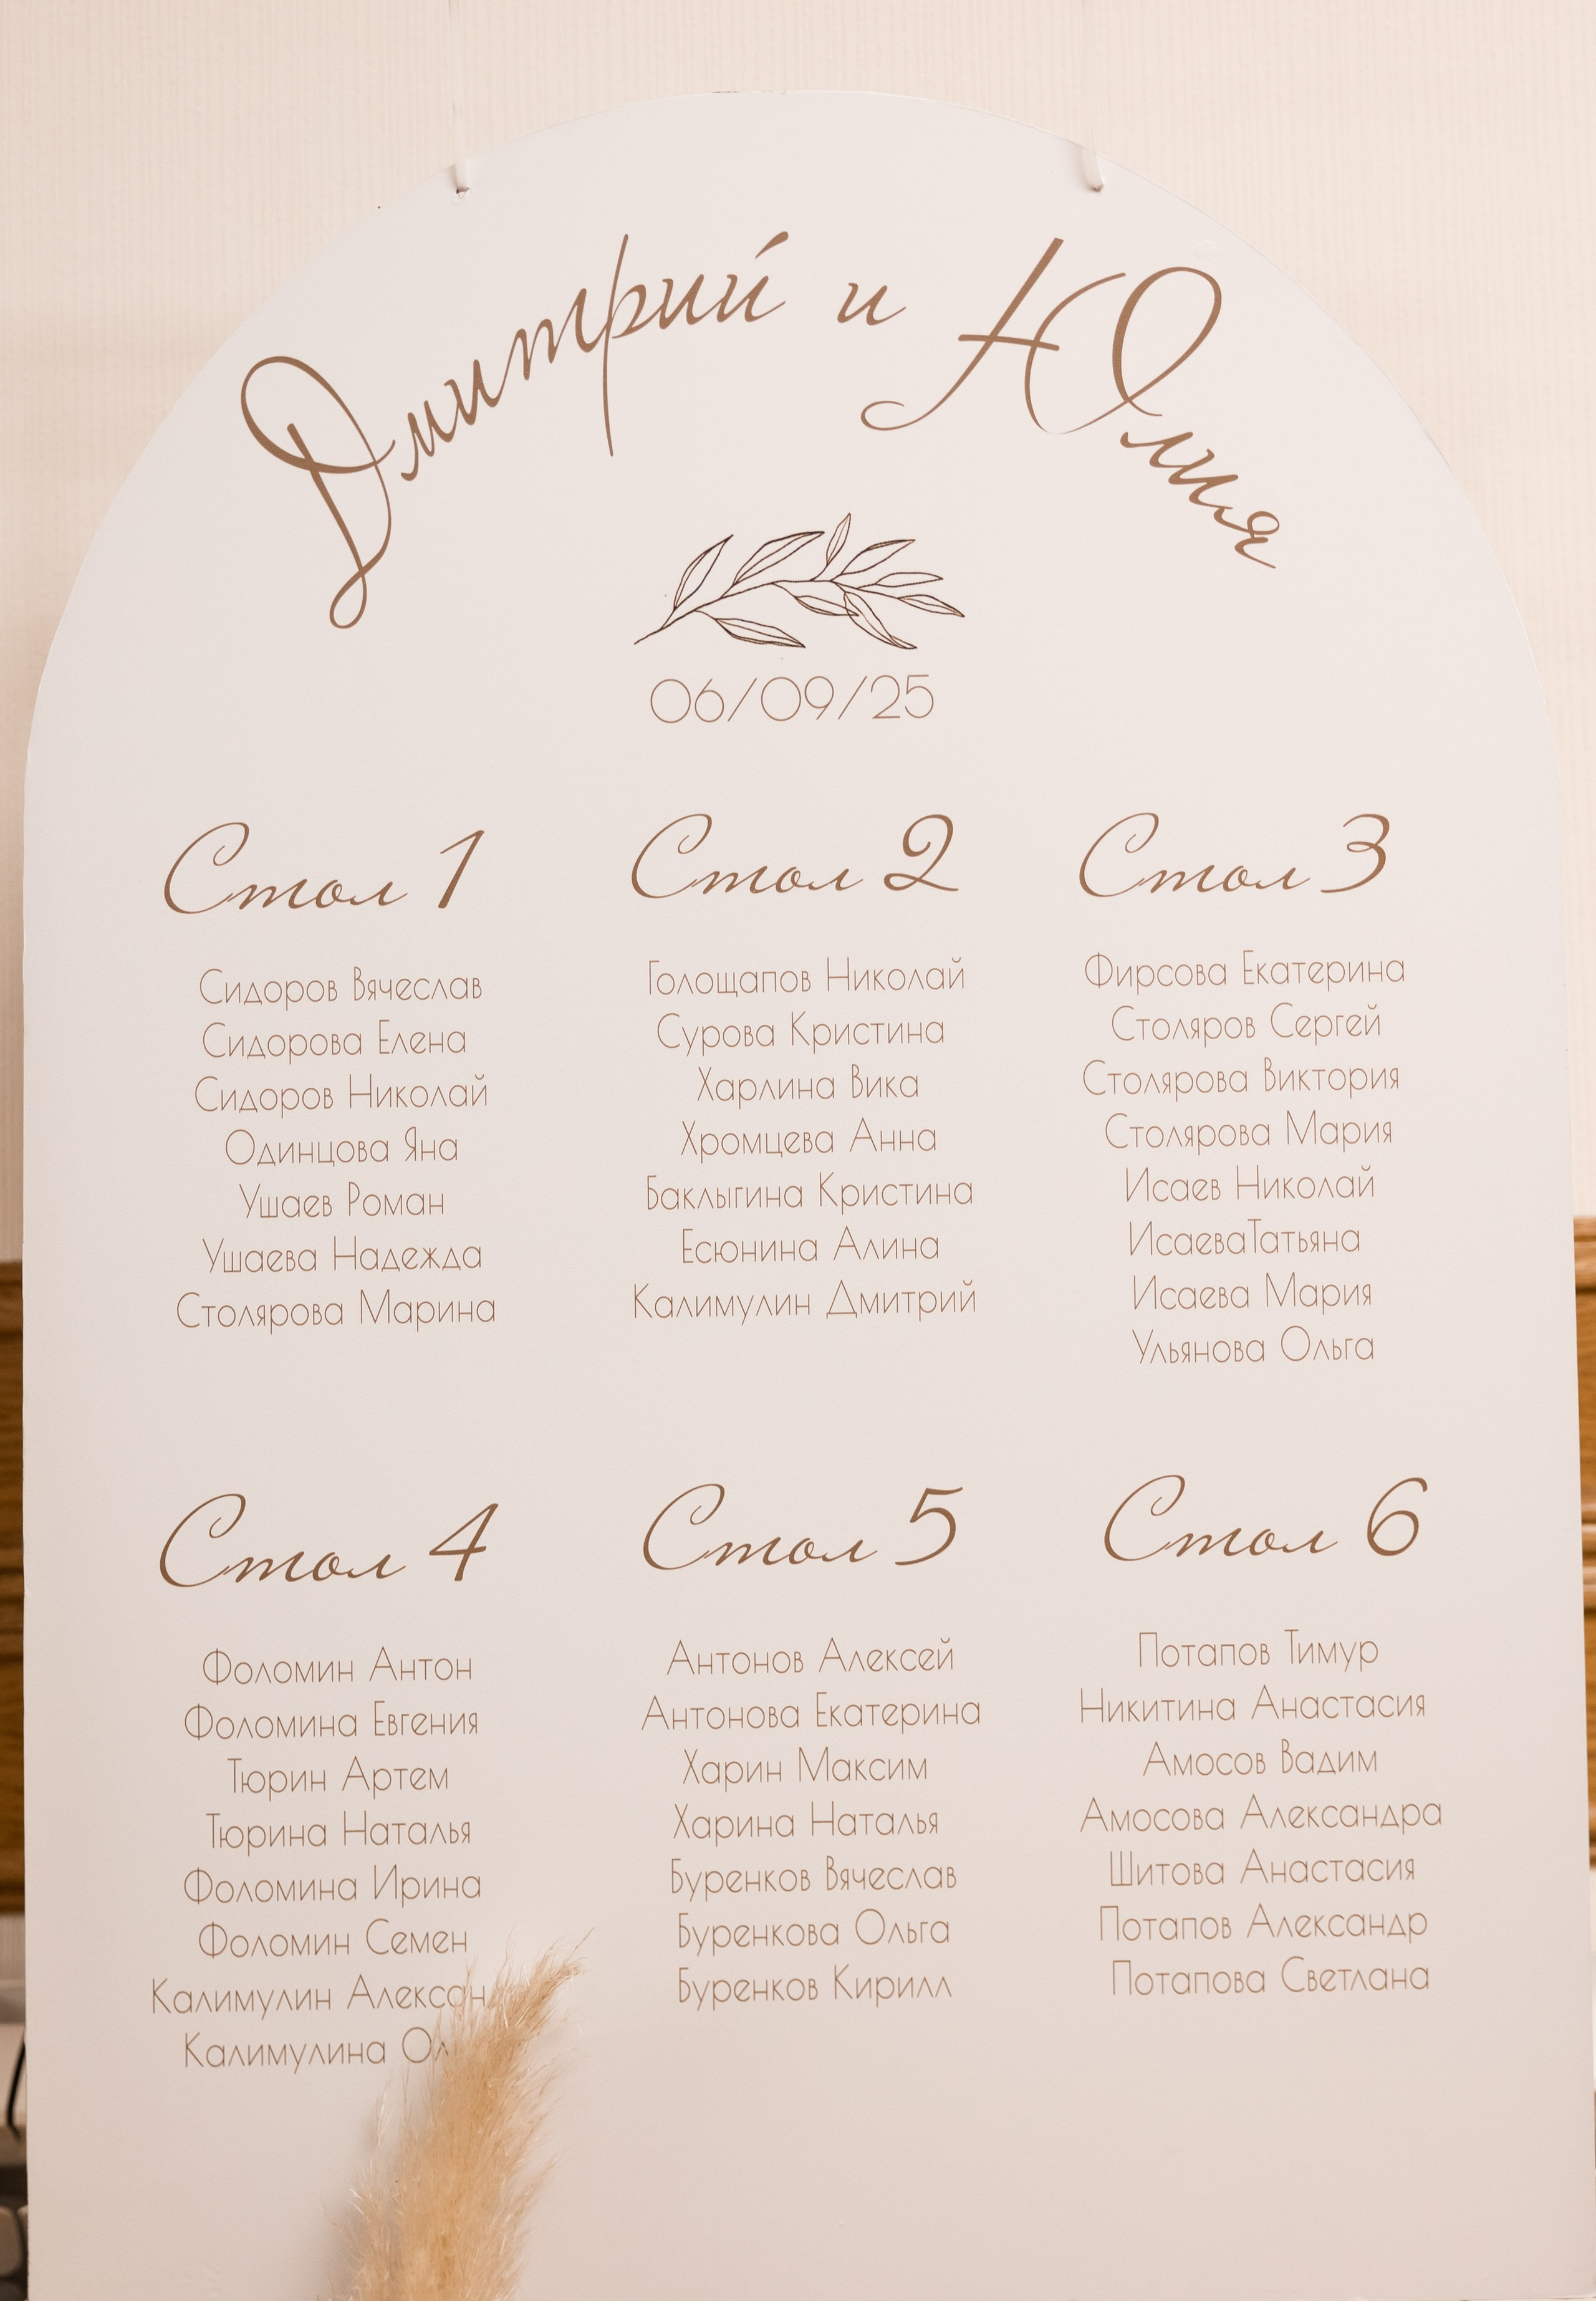 Дмитрий и Юлия
06/09/25
Стол 1
Сидоров Вячеслав
Сидорова Елена
Сидоров Николай
Одинцова Яна
Ушаев Роман
Ушаева Надежда
Столярова Марина
Стол 2
Голощапов Николай
Сурова Кристина
Харлина Вика
Хромцева Анна
Баклыгина Кристина
Есюнина Алина
Калимулин Дмитрий
Стол 3
Фирсова Екатерина
Столяров Сергей
Столярова Виктория
Столярова Мария
Исаев Николай
ИсаеваТатьяна
Исаева Мария
Ульянова Ольга
Стол 4
Фоломин Антон
Фоломина Евгения
Тюрин Артем
Тюрина Наталья
Фоломина Ирина
Фоломин Семен
Калимулин
Калимулина
Стол 5
Антонов Алексей
Антонова Екатерина
Харин Максим
Харина Наталья
Буренков Вячеслав
Буренкова Ольга
Буренков Кирилл
Стол 6
Потапов Тимур
Никитина Анастасия
Амосов Вадим
Амосова Александра
Шитова Анастасия
Потапов Александр
Потапова Светлана